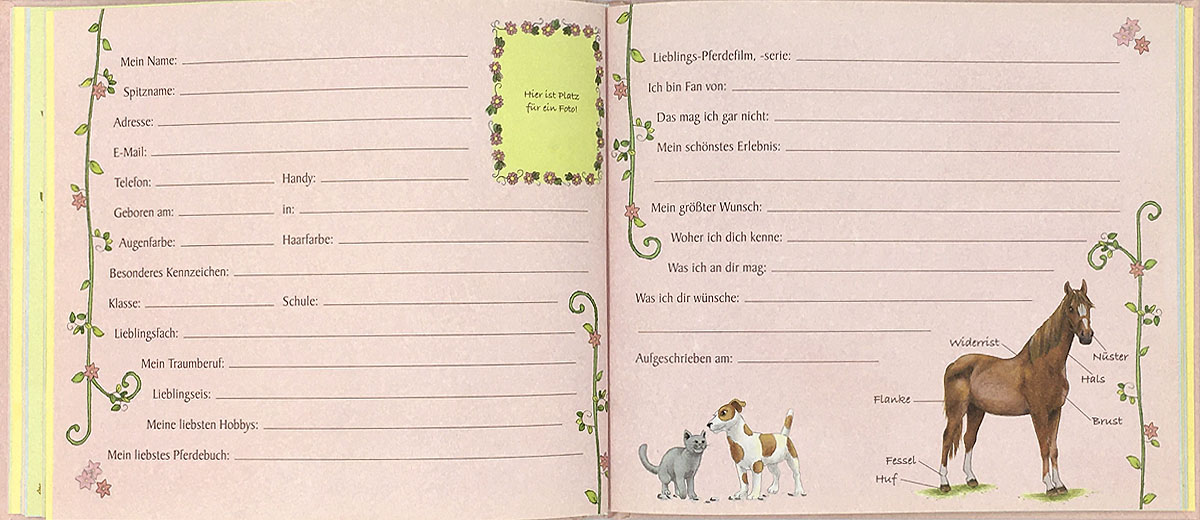 Mein Name:
Spitzname:
Adresse:
E-Mail:
Telefon: Handy:
Geboren am: in:
Augenfarbe: Haarfarbe:
Besonderes Kennzeichen:
Klasse: Schule:
Lieblingsfach:
Mein Traumberuf:
Lieblingseis:
Meine liebsten Hobbys:
Mein liebstes Pferdebuch:
Hier ist Platz
für ein Foto!
Lieblings-Pferdefilm, -serie:
Ich bin Fan von:
Das mag ich gar nicht:
Mein schönstes Erlebnis:
Mein größter Wunsch:
Woher ich dich kenne:
Was ich an dir mag:
Was ich dir wünsche:
Aufgeschrieben am:
Widerrist
Nüster
Hals
Flanke
Brust
Fessel
Huf